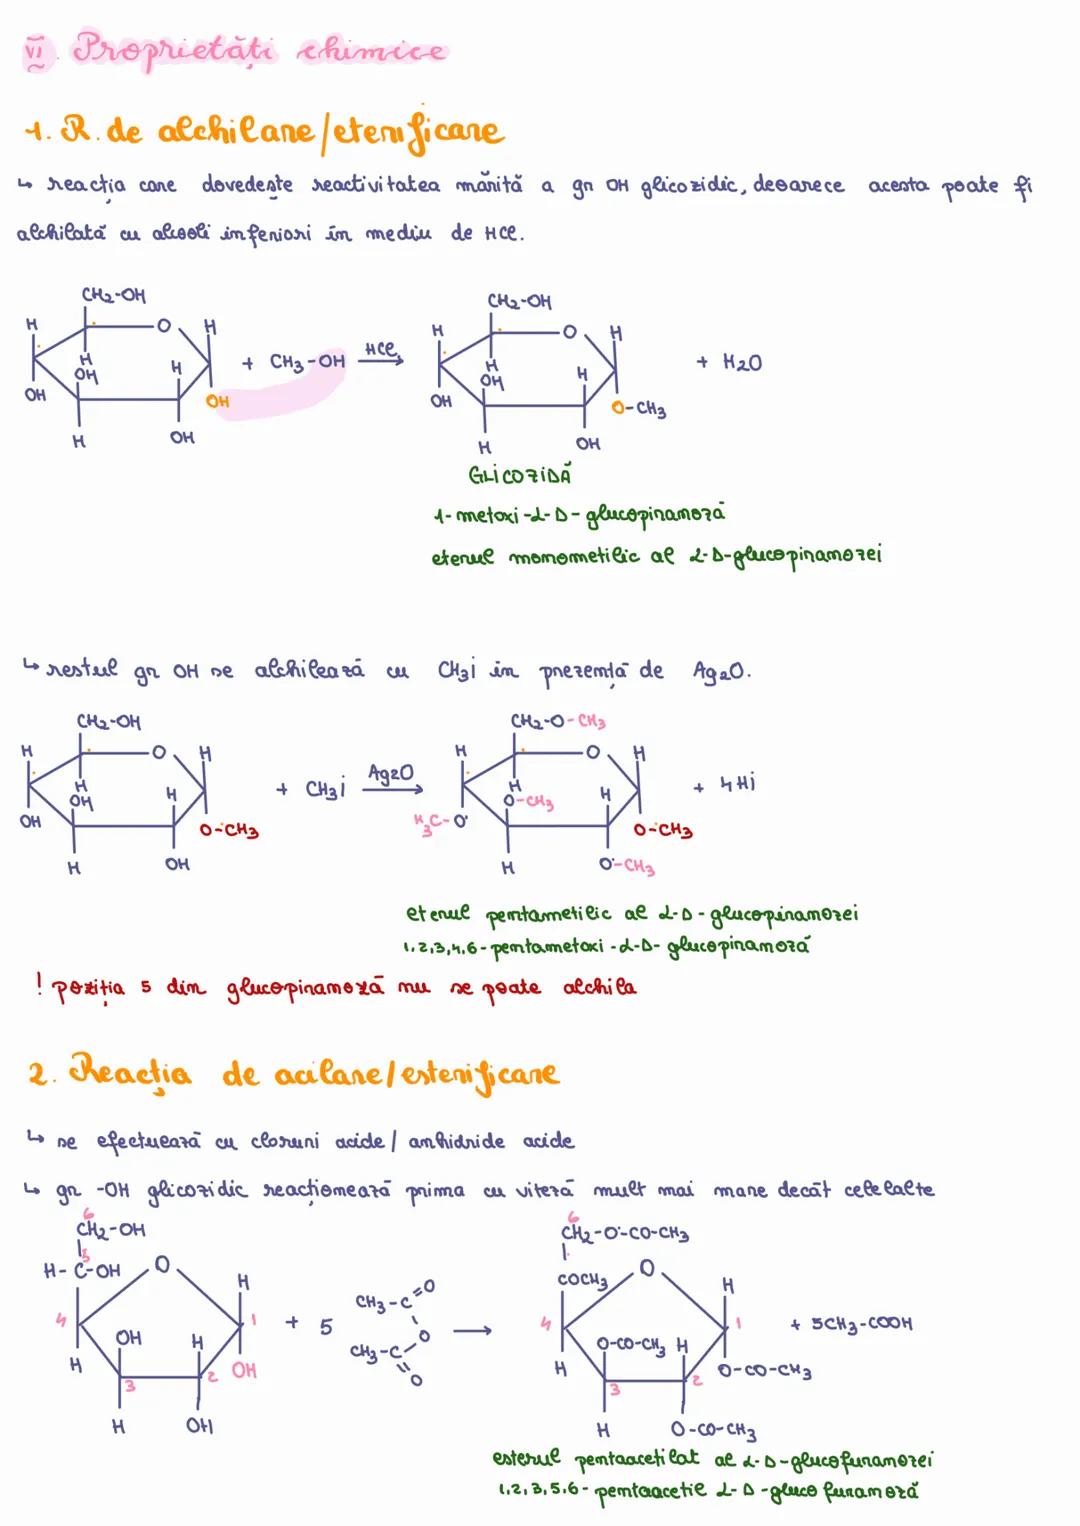 VI. Proprietăți chimice
1. R. de alchilare/eterificare
↳ reacția care dovedește reactivitatea mărită a gr OH glicozidic, deoarece acesta poate fi
alchilată cu alcooli inferiori în mediu de HCl.
CH2-OH
H
O
H
H
OH
H
OH
OH
H
OH
+ CH3-OH
HCl
CH2-OH
H
O
H
H
OH
H
OH
O-CH3
H
OH
+ H2O
GLICOZIDĂ
1-metoxi-α-D-glucopiranoză
eterul monometilic al α-D-glucopiranozei
↳ restul gr OH se alchilează cu CH3I in prezență de Ag2O.
CH2-OH
H
O
H
H
OH
H
OH
O-CH3
H
OH
+ CH3I
Ag2O
CH2-O-CH3
H
O
H
H
O-CH3
H
H3C-O
O-CH3
H
O-CH3
+ 4HI
eterul pentametilic al α-D-glucopiranozei
1,2,3,4,6-pentametoxi-α-D-glucopiranoză
! poziția 5 din glucopiranoză nu se poate alchila
2. Reacția de acilare/esterificare
↳ se efectuează cu cloruri acide/ anhidride acide
↳ gr -OH glicozidic reacționează prima cu viteză mult mai mare decât celelalte
6
CH2-OH
5
H-C-OH
O
H
4
1
OH
H
H
2
OH
3
H
OH
+ 5
CH3-C=O
O
CH3-C=O
6
CH2-O-CO-CH3
COCH3
O
H
4
1
O-CO-CH3
H
H
2
O-CO-CH3
3
H
O-CO-CH3
+ 5CH3-COOH
esterul pentaacetilat al α-D-glucofuranozei
1,2,3,5,6-pentaacetil α-D-glucofuranoză